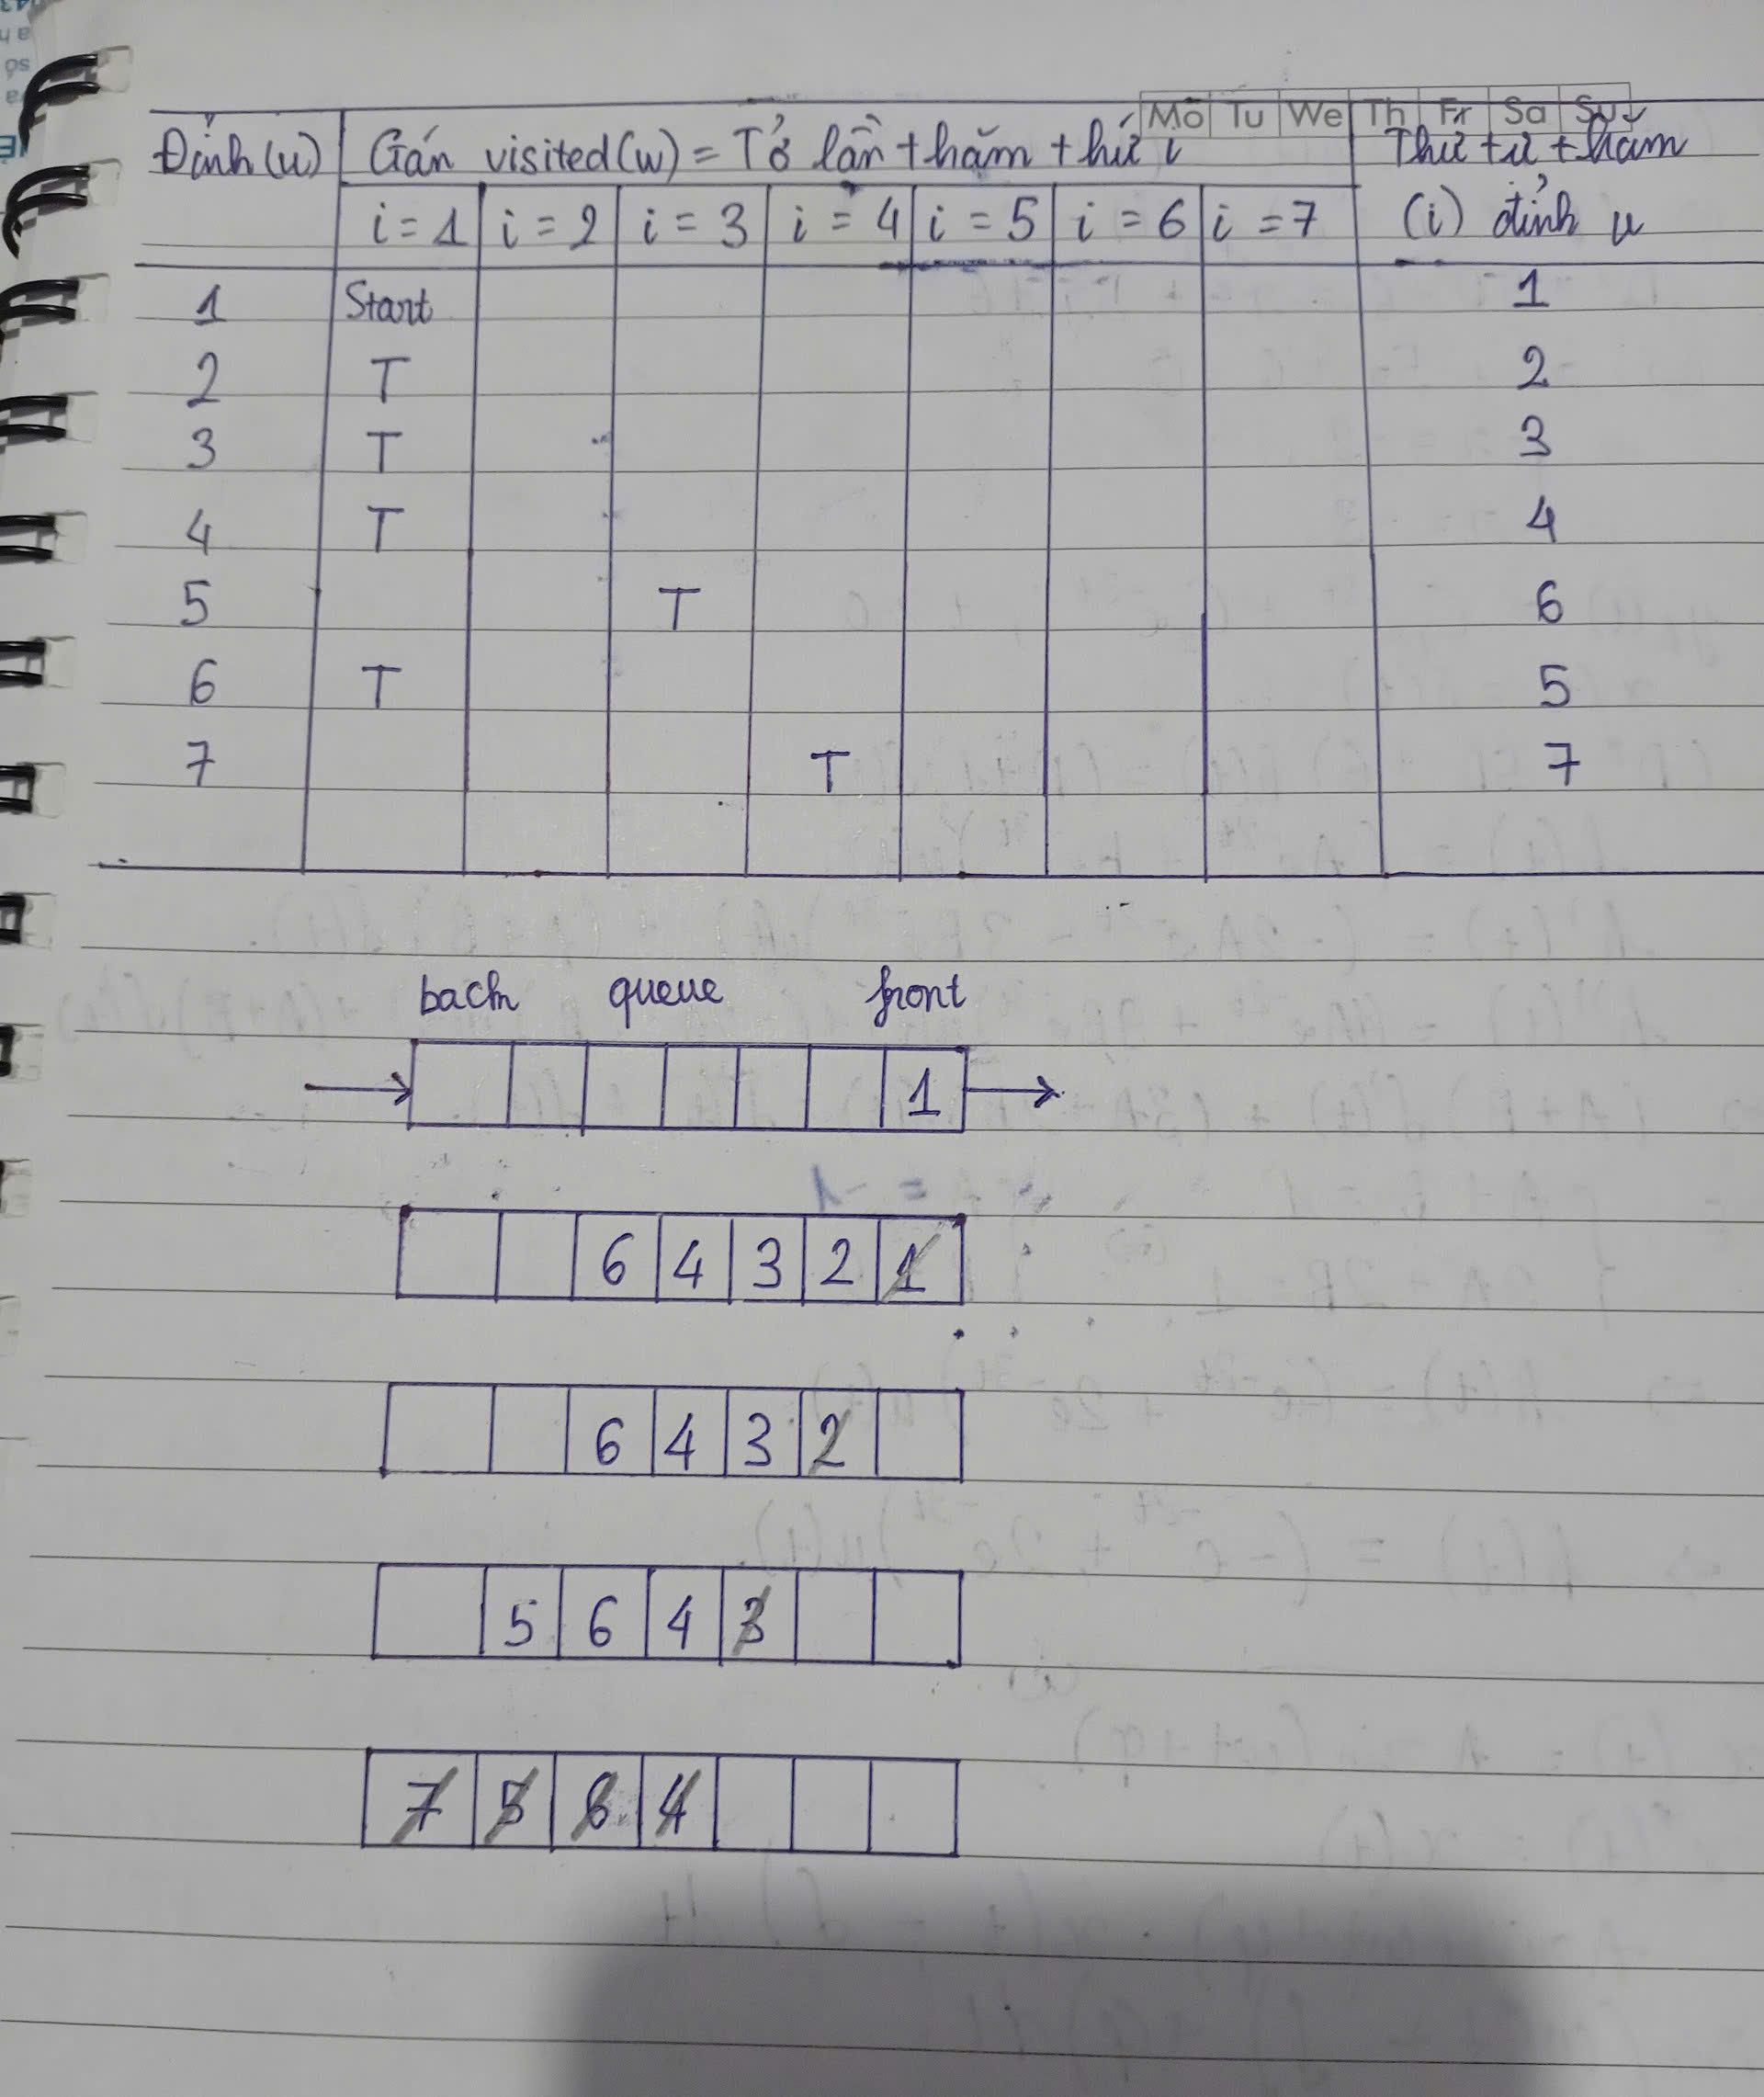 Mo Tu We Th Fr Sa Su
Đỉnh (u) Gán visited(w) = T ở lần thăm thứ i Thứ tự thăm
i = 1 i = 2 i = 3 i = 4 i = 5 i = 6 i = 7 (i) đỉnh u
1 Start 1
2 T 2
3 T 3
4 T 4
5 T 6
6 T 5
7 T 7
back queue front
1
6 4 3 2 1
6 4 3 2
5 6 4 3
7 5 6 4